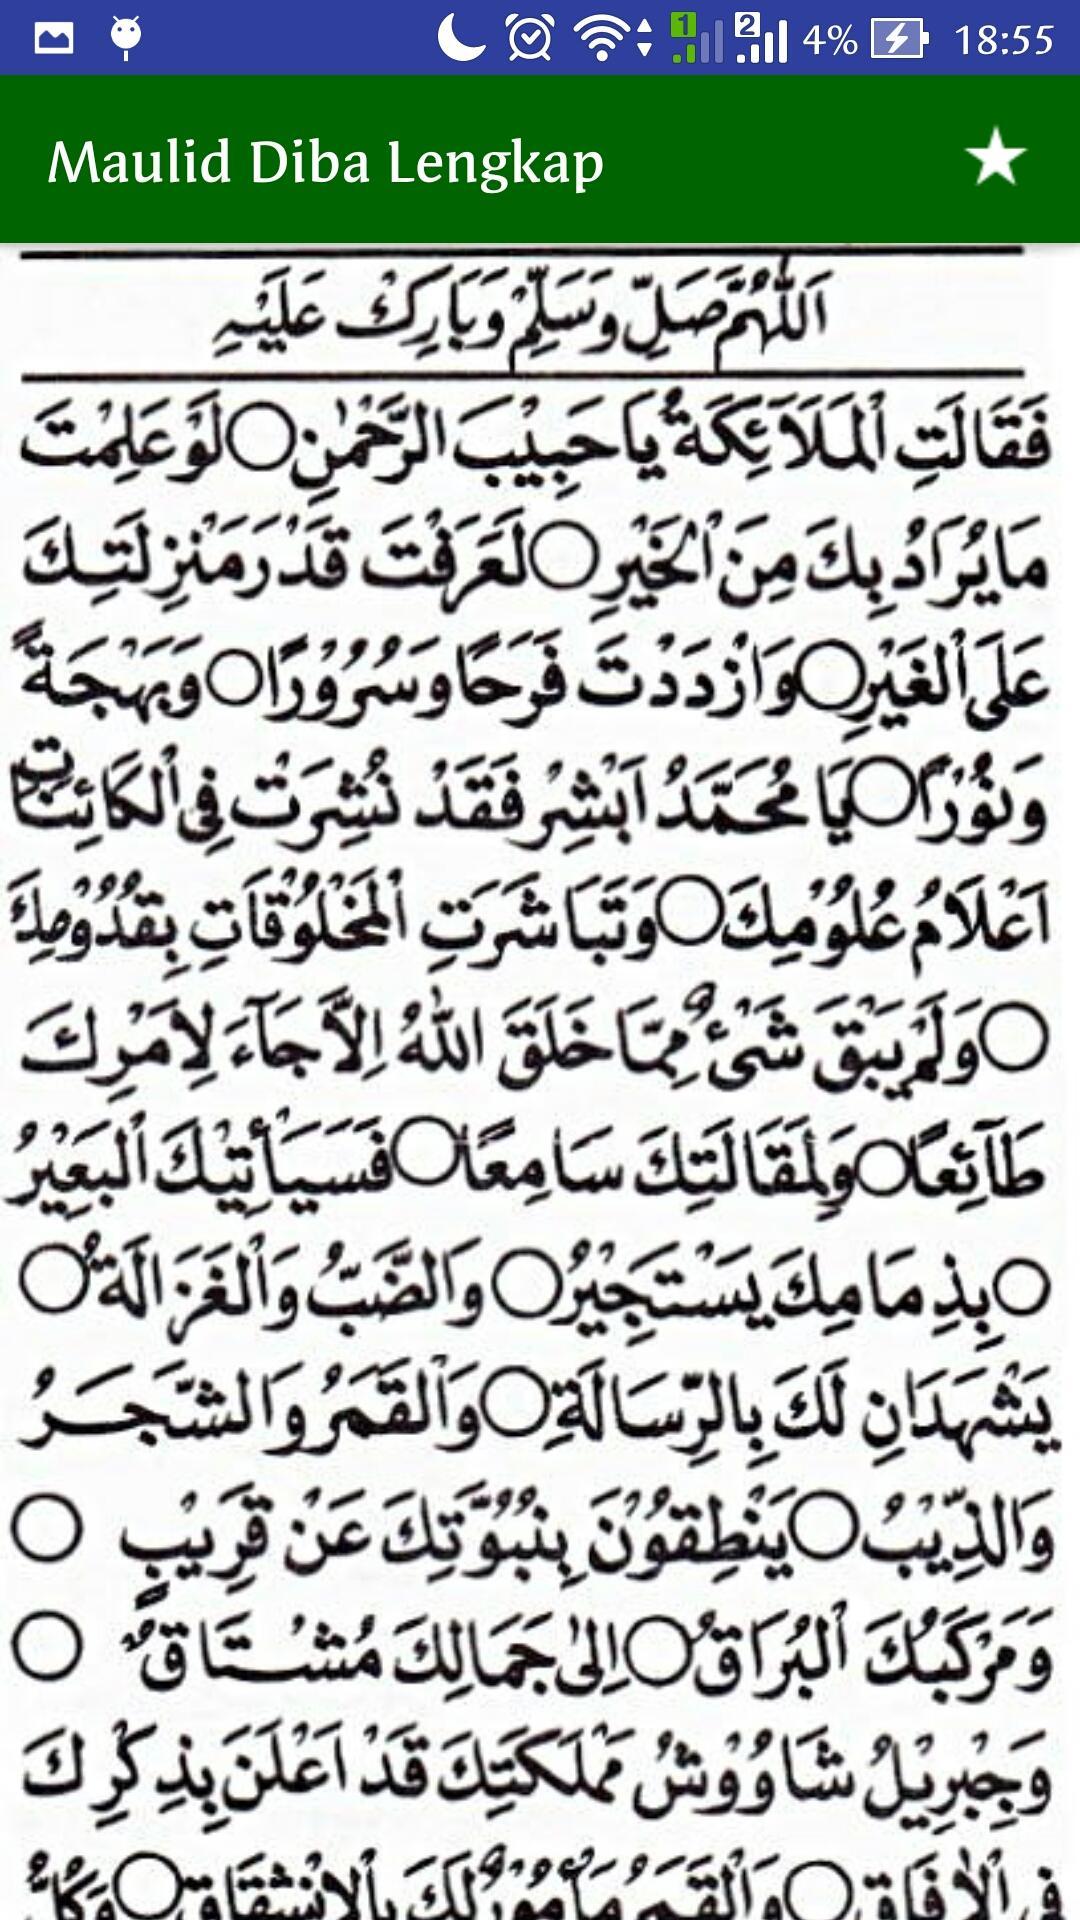 4% 18:55
Maulid Diba Lengkap
اَللّٰهُمَّ صَلِّ وَسَلِّمْ وَبَارِكْ عَلَيْهِ
فَقَالَتِ الْمَلَآئِكَةُ يَا حَبِيْبَ الرَّحْمٰنِ ○ لَوْ عَلِمْتَ
مَا يُرَادُ بِكَ مِنَ الْخَيْرِ ○ لَعَرَفْتَ قَدْرَ مَنْزِلَتِكَ
عَلَى الْغَيْرِ ○ وَازْدَدْتَ فَرَحًا وَسُرُوْرًا ○ وَبَهْجَةً
وَنُوْرًا ○ يَا مُحَمَّدُ اَبْشِرْ فَقَدْ نُشِرَتْ فِى الْكَائِنَاتِ
اَعْلَامُ عُلُوْمِكَ ○ وَتَبَاشَرَتِ الْمَخْلُوْقَاتِ بِقُدُوْمِكَ
○ وَلَمْ يَبْقَ شَىْءٌ مِمَّا خَلَقَ اللّٰهُ اِلَّا جَآءَ لِاَمْرِكَ
طَآئِعًا ○ وَلِمَقَالَتِكَ سَامِعًا ○ فَسَيَأْتِيْكَ الْبَعِيْرُ
○ بِذِمَامِكَ يَسْتَجِيْرُ ○ وَالضَّبُّ وَالْغَزَالَةُ ○
يَشْهَدَانِ لَكَ بِالرِّسَالَةِ ○ وَالْقَمَرُ وَالشَّجَرُ
وَالذِّيْبُ ○ يَنْطِقُوْنَ بِنُبُوَّتِكَ عَنْ قَرِيْبٍ ○
وَمَرْكَبُكَ الْبُرَاقُ ○ اِلٰى جَمَالِكَ مُشْتَاقٌ ○
وَجِبْرِيْلُ شَاوُوْشُ مَمْلَكَتِكَ قَدْ اَعْلَنَ بِذِكْرِكَ
فِى الْاٰفَاقِ ○ وَالْقَمَرُ مَأْمُوْرٌ لَكَ بِالْاِنْشِقَاقِ ○ وَكُلُّ